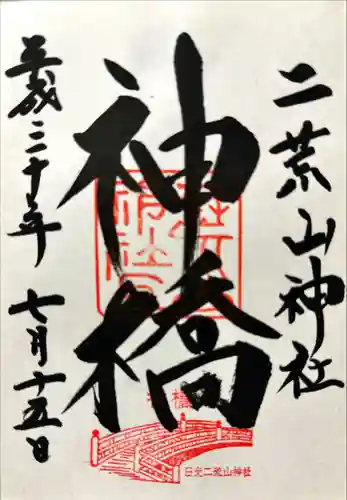 二荒山神社
神橋
平成三十年 七月十五日
神橋
日光二荒山神社